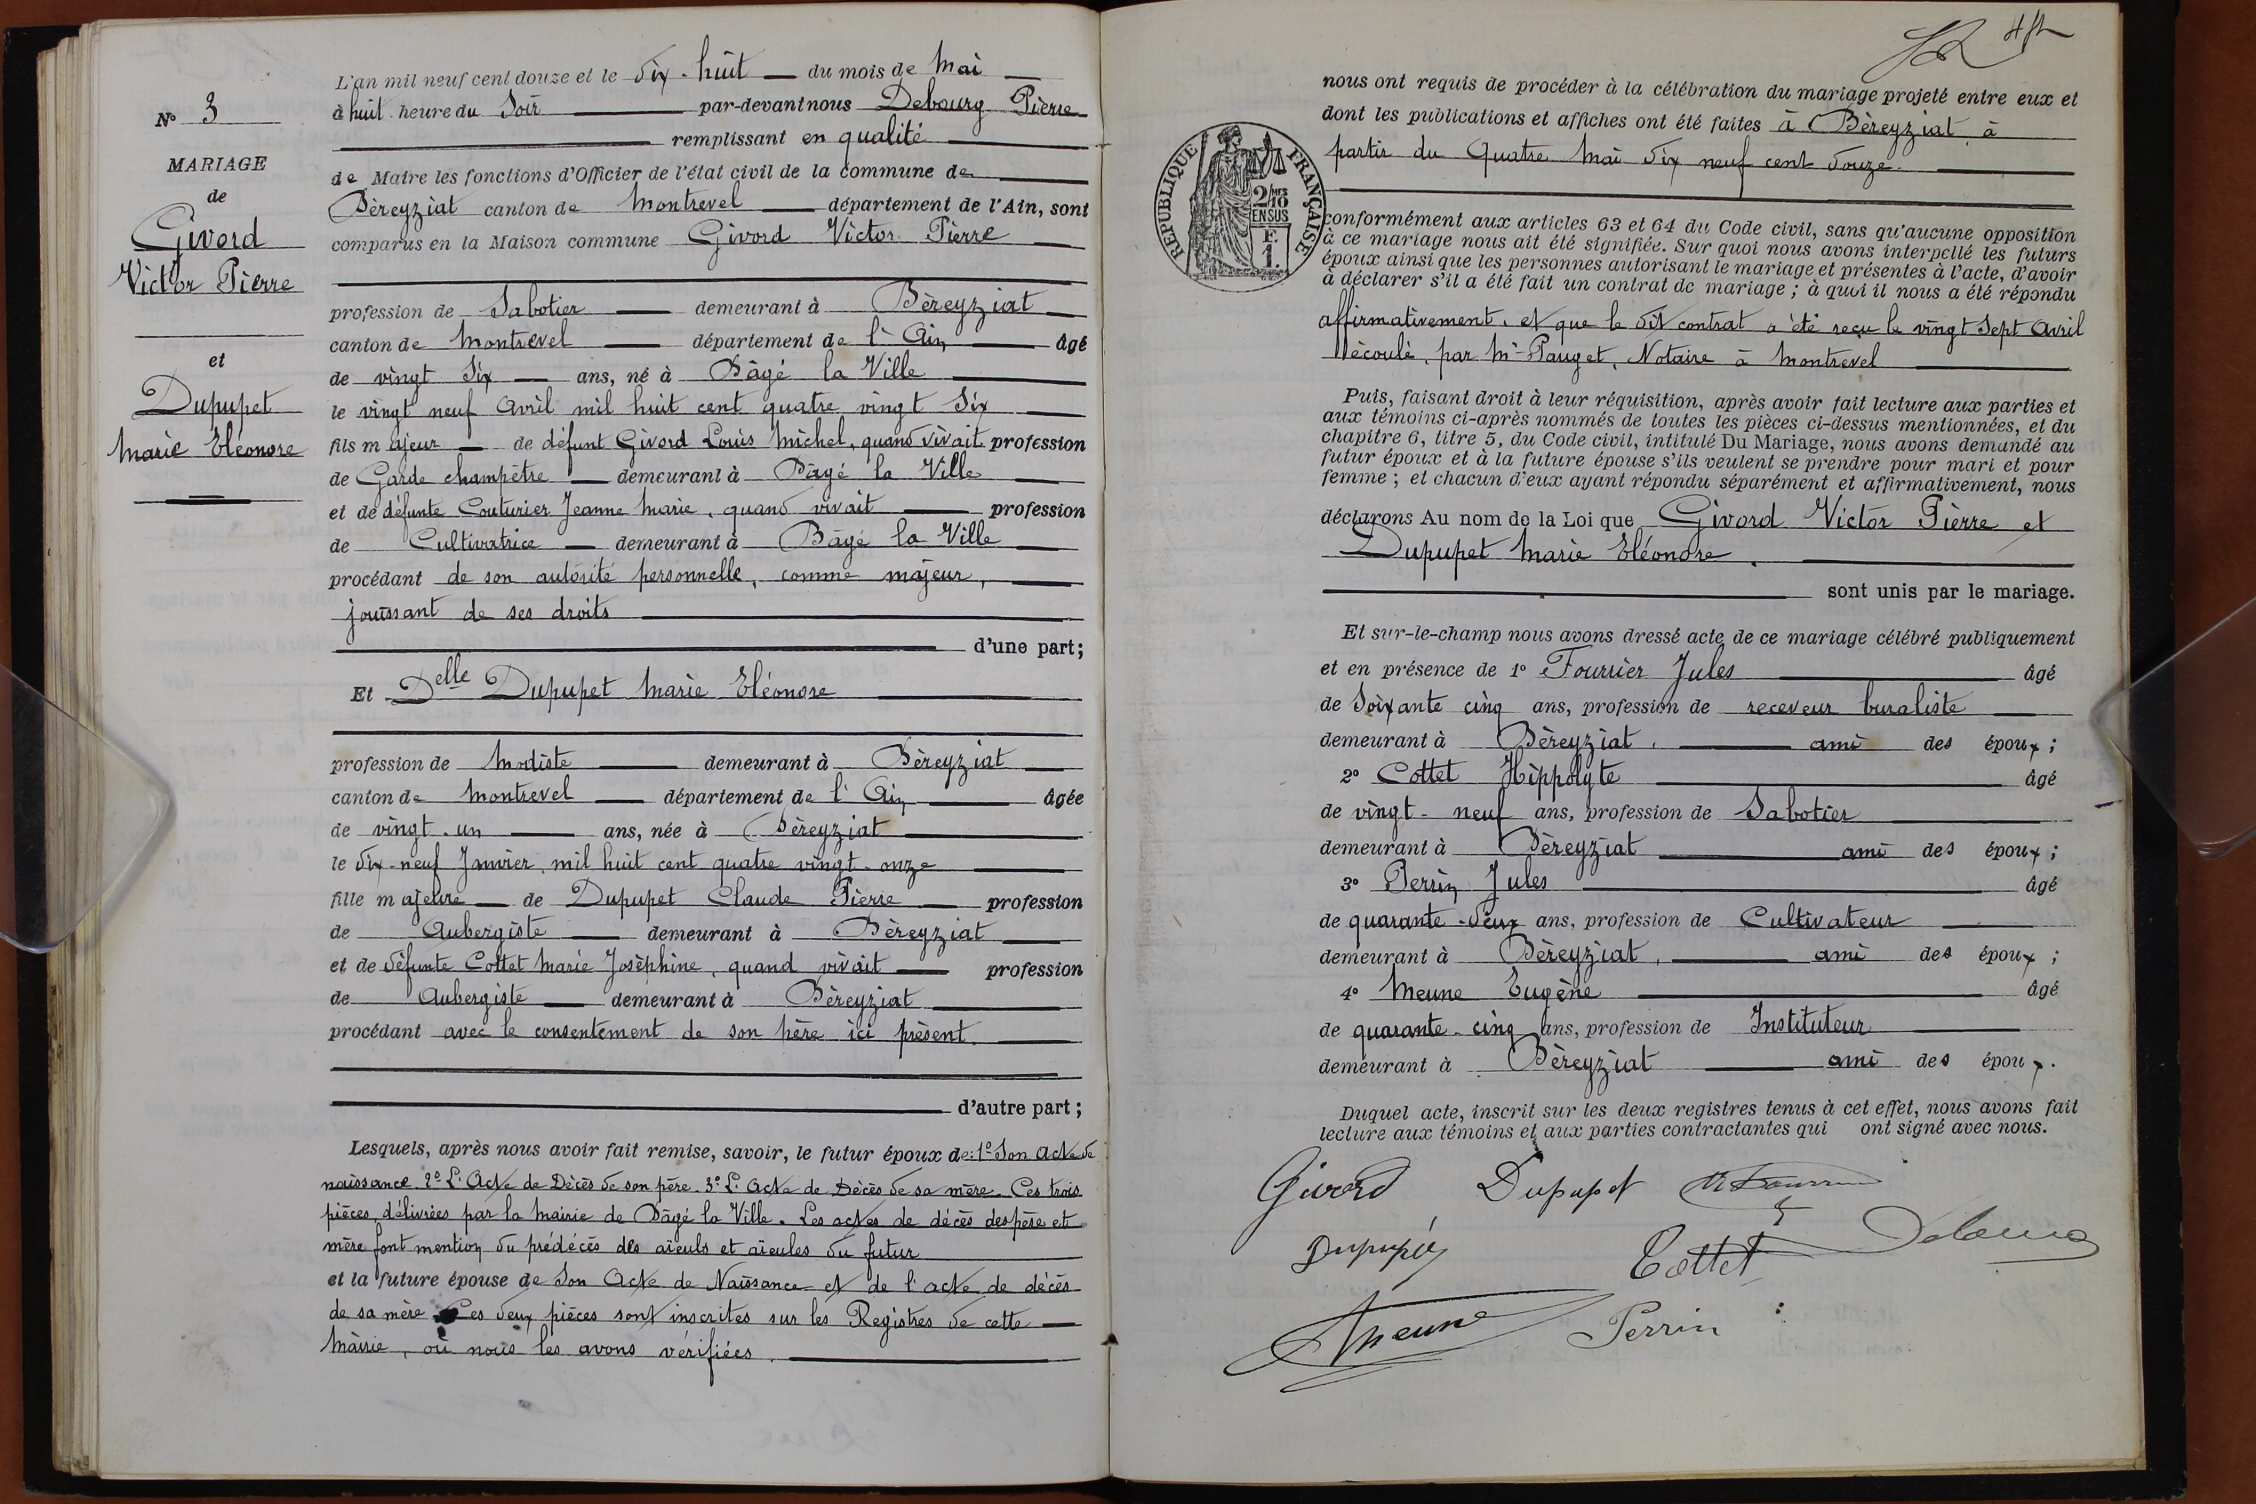 N° 3
MARIAGE
de
Givord
Victor Pierre
et
Dupupet
Marie Eléonore
L'an mil neuf cent douze et le dix-huit du mois de Mai
à huit heure du Soir par-devant nous Debourg Pierre
remplissant en qualité
de Maire les fonctions d'Officier de l'état civil de la commune de
Béreyziat canton de Montrevel département de l'Ain, sont
comparus en la Maison commune Givord Victor Pierre
profession de Sabotier demeurant à Béreyziat
canton de Montrevel département de l'Ain âgé
de vingt six ans, né à Bâgé la Ville
le vingt neuf Avril mil huit cent quatre vingt six
fils majeur de défunt Givord Louis Michel, quand vivait profession
de Garde champêtre demeurant à Bâgé la Ville
et de défunte Couturier Jeanne Marie, quand vivait profession
de Cultivatrice demeurant à Bâgé la Ville
procédant de son autorité personnelle, comme majeur,
jouissant de ses droits
d'une part;
Et Delle Dupupet Marie Eléonore
profession de Modiste demeurant à Béreyziat
canton de Montrevel département de l'Ain âgée
de vingt-un ans, née à Béreyziat
le dix-neuf Janvier, mil huit cent quatre vingt-onze
fille majeure de Dupupet Claude Pierre profession
de Aubergiste demeurant à Béreyziat
et de défunte Cottet Marie Josèphine, quand vivait profession
de Aubergiste demeurant à Béreyziat
procédant avec le consentement de son père ici présent.
d'autre part;
Lesquels, après nous avoir fait remise, savoir, le futur époux de: 1° Son Acte de
naissance. 2° L'Acte de Décès de son père. 3° L'Acte de Décès de sa mère. Ces trois
pièces, délivrées par la Mairie de Bâgé la Ville. Les actes de décès des père et
mère font mention du prédécés des aïeuls et aïeules du futur
et la future épouse de Son Acte de Naissance et de l'acte de décès
de sa mère Ces deux pièces sont inscrites sur les Registres de cette
Mairie, où nous les avons vérifiées.
nous ont requis de procéder à la célébration du mariage projeté entre eux et
dont les publications et affiches ont été faites à Béreyziat à
partir du Quatre Mai dix neuf cent douze.
RÉPUBLIQUE FRANÇAISE
2/10MES
EN SUS
F.
1.
conformément aux articles 63 et 64 du Code civil, sans qu'aucune opposition
à ce mariage nous ait été signifiée. Sur quoi nous avons interpellé les futurs
époux ainsi que les personnes autorisant le mariage et présentes à l'acte, d'avoir
à déclarer s'il a été fait un contrat de mariage; à quoi il nous a été répondu
affirmativement, et que le dit contrat a été reçu le vingt Sept Avril
écoulé, par Me Pauget, Notaire à Montrevel
Puis, faisant droit à leur réquisition, après avoir fait lecture aux parties et
aux témoins ci-après nommés de toutes les pièces ci-dessus mentionnées, et du
chapitre 6, titre 5, du Code civil, intitulé Du Mariage, nous avons demandé au
futur époux et à la future épouse s'ils veulent se prendre pour mari et pour
femme; et chacun d'eux ayant répondu séparément et affirmativement, nous
déclarons Au nom de la Loi que Givord Victor Pierre et
Dupupet Marie Eléonore.
sont unis par le mariage.
Et sur-le-champ nous avons dressé acte de ce mariage célébré publiquement
et en présence de 1° Fourrier Jules âgé
de Soixante cinq ans, profession de receveur buraliste
demeurant à Béreyziat, ami des époux;
2° Cottet Hippolyte âgé
de vingt-neuf ans, profession de Sabotier
demeurant à Béreyziat ami des époux;
3° Perrin Jules âgé
de quarante-deux ans, profession de Cultivateur
demeurant à Béreyziat, ami des époux;
4° Meune Eugène âgé
de quarante-cinq ans, profession de Instituteur
demeurant à Béreyziat ami des époux.
Duquel acte, inscrit sur les deux registres tenus à cet effet, nous avons fait
lecture aux témoins et aux parties contractantes qui ont signé avec nous.
Givord Dupupet
Dupupet Cottet
Meune Perrin